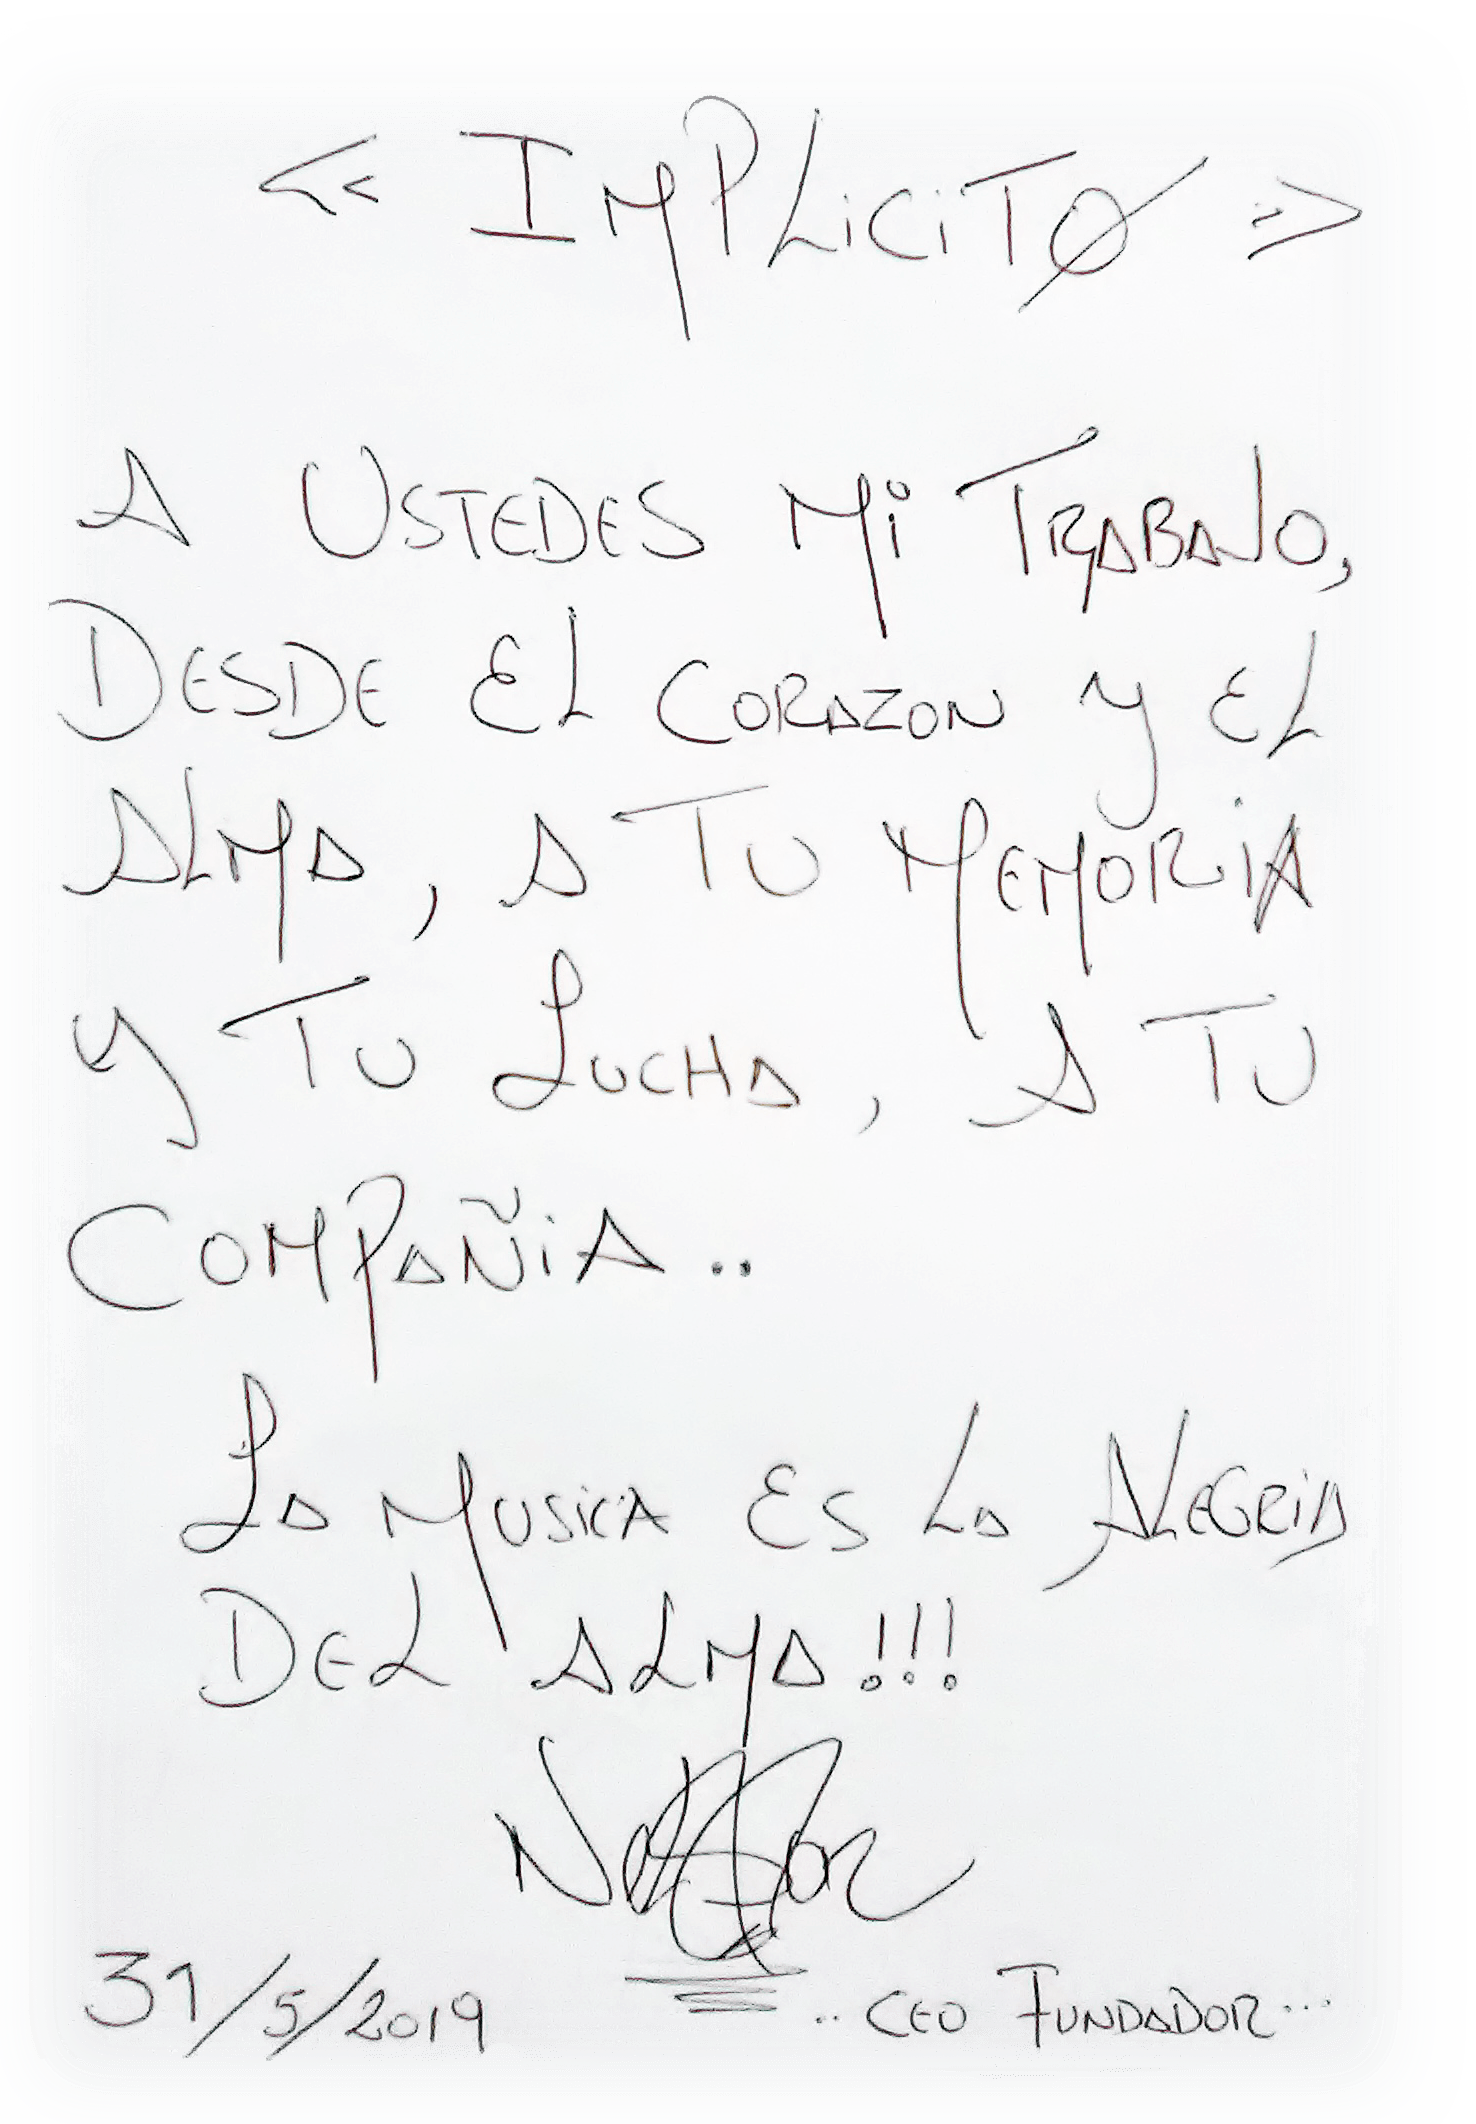 << IMPLiCiTØ >>
A USTEDES Mi TRABAJO,
DESDE EL CORAZON Y EL
ALMA, A TU MEMORiA
Y TU LUCHA, A TU
COMPAÑiA..
LA MUSiCA ES LA ALEGRiA
DEL ALMA!!!
31/5/2019 .. CEO FUNDADOR...